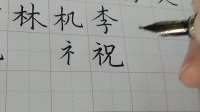 林机李
礻祝